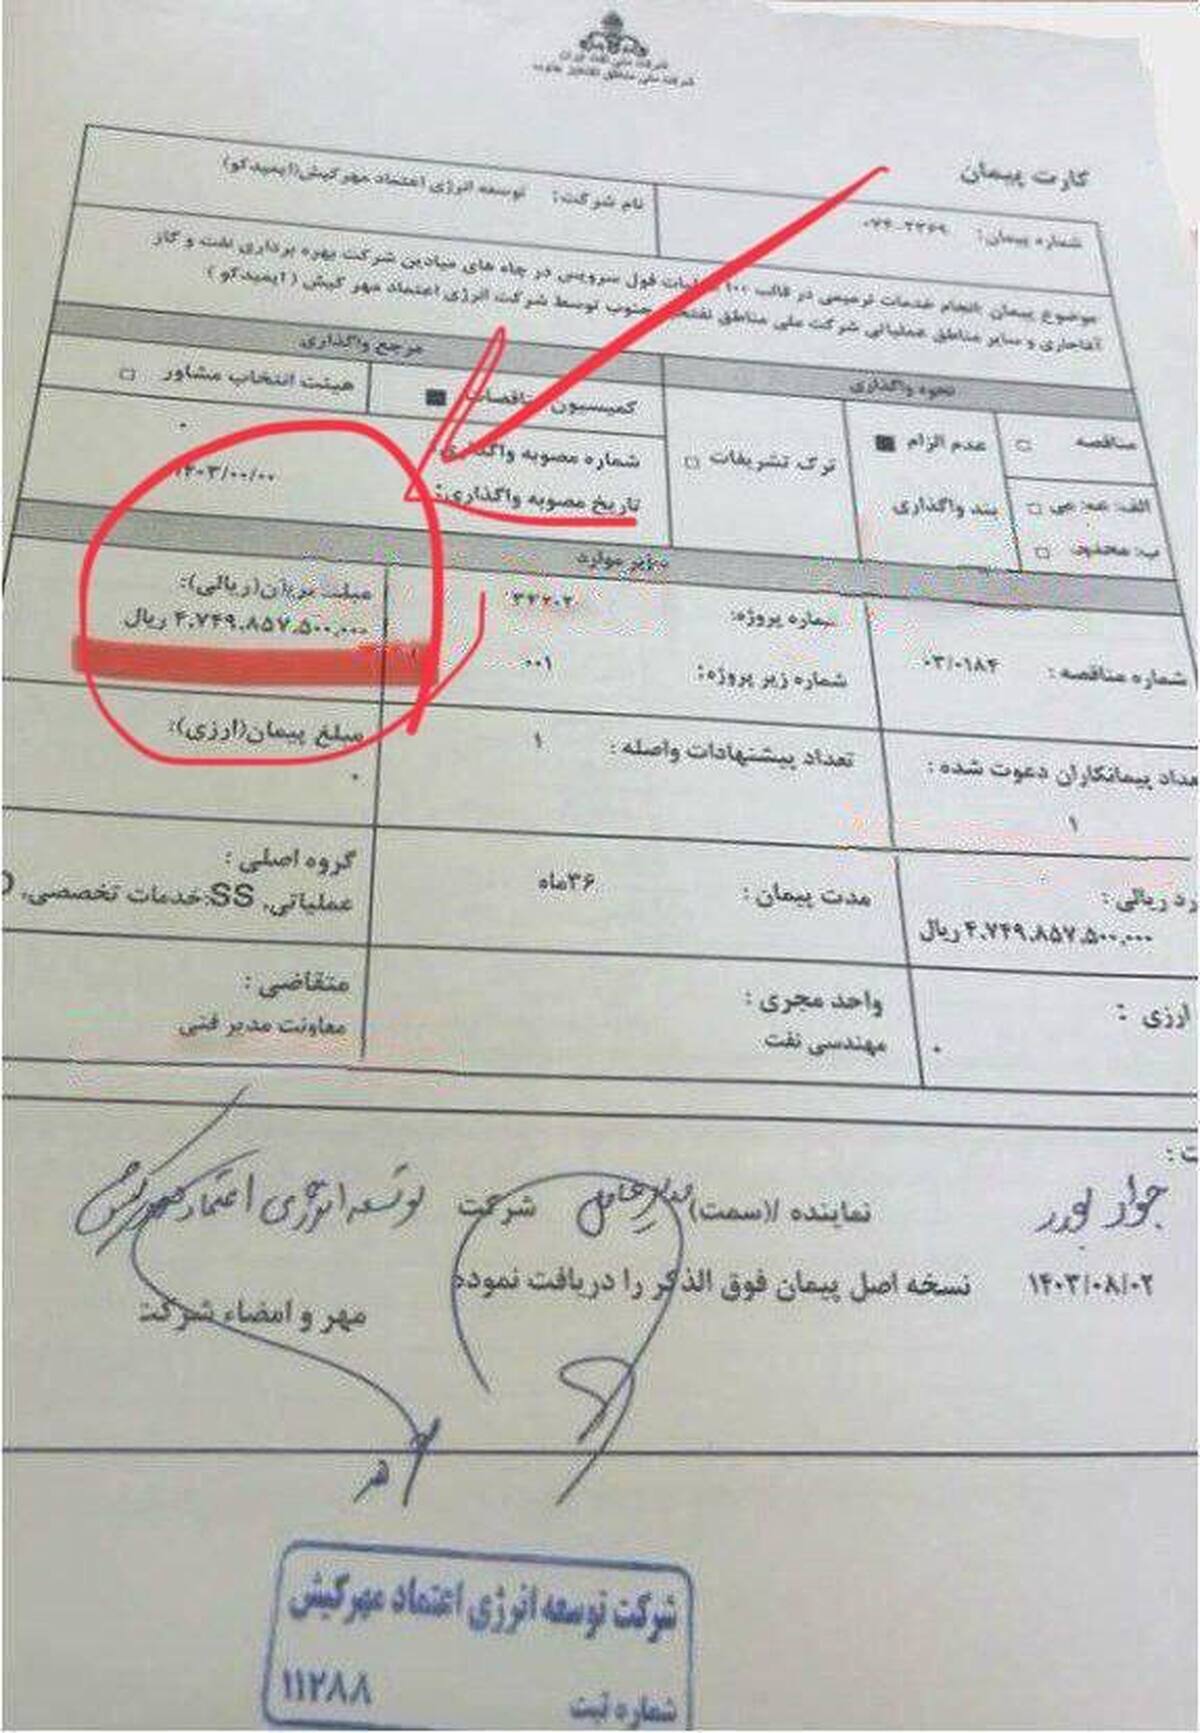 شرکت ملی نفت ایران
شرکت ملی مناطق نفتخیز جنوب
کارت پیمان
شماره پیمان: ۰۷۴-۲۲۶۹
نام شرکت: توسعه انرژی اعتماد مهرکیش(ایمیدکو)
موضوع پیمان: انجام خدمات ترمیمی در قالب ۱۰۰ عملیات فول سرویس در چاه های میادین شرکت بهره برداری نفت و گاز
آغاجاری و سایر مناطق عملیاتی شرکت ملی مناطق نفتخیز جنوب توسط شرکت انرژی اعتماد مهر کیش ( ایمیدکو )
نحوه واگذاری
مرجع واگذاری
مناقصه □
الف: عمومی □
ب: محدود □
عدم الزام ■
بند واگذاری
ترک تشریفات □
کمیسیون مناقصات ■
هیئت انتخاب مشاور □
شماره مصوبه واگذاری: ۰
تاریخ مصوبه واگذاری: ۱۴۰۳/۰۰/۰۰
سایر موارد
شماره مناقصه : ۰۳/۰۱۸۴
شماره پروژه:
شماره زیر پروژه: ۰۰۱
مبلغ پیمان(ریالی):
۴،۷۴۹،۸۵۷،۵۰۰،۰۰۰ ریال
عداد پیمانکاران دعوت شده :
۱
تعداد پیشنهادات واصله : ۱
مبلغ پیمان(ارزی):
۰
رد ریالی :
۴،۷۴۹،۸۵۷،۵۰۰،۰۰۰ ریال
مدت پیمان : ۳۶ماه
گروه اصلی :
عملیاتی، SS:خدمات تخصصی، D
ارزی :
۰
واحد مجری :
مهندسی نفت
متقاضی :
معاونت مدیر فنی
ت :
جواد پورر نماینده /(سمت) مدیرعامل شرکت توسعه انرژی اعتماد مهرکیش
۱۴۰۳/۰۸/۰۲ نسخه اصل پیمان فوق الذکر را دریافت نموده
مهر و امضاء شرکت
شرکت توسعه انرژی اعتماد مهرکیش
شماره ثبت ۱۱۲۸۸